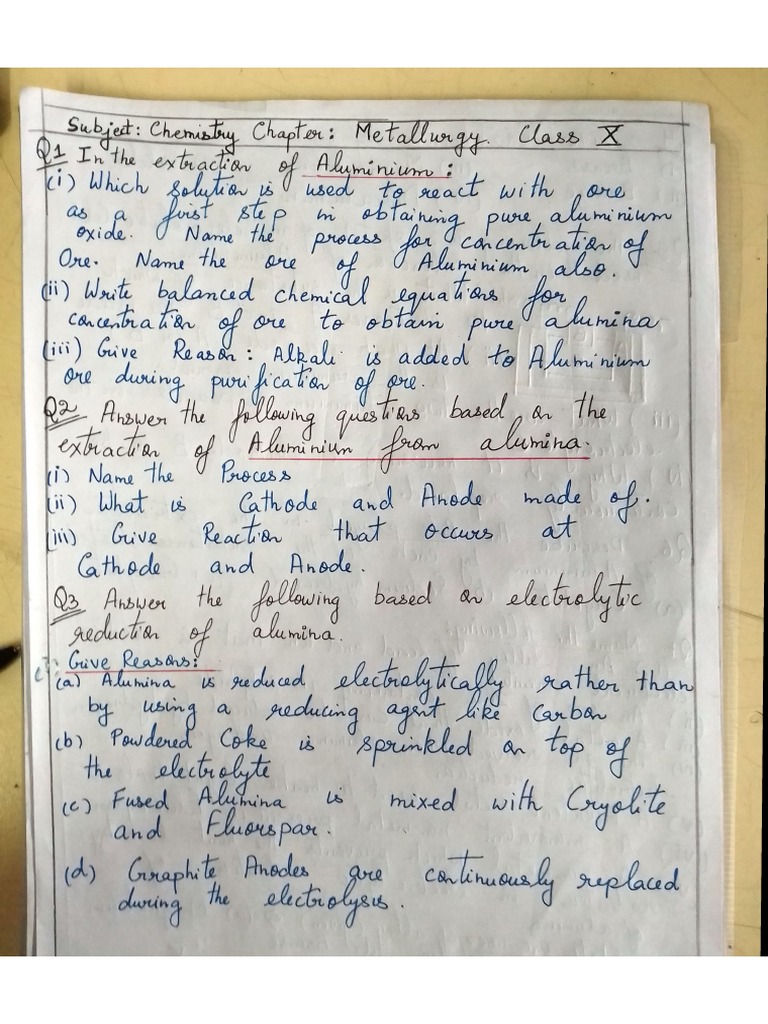 Subject: Chemistry Chapter: Metallurgy. Class X
Q1 In the extraction of Aluminium:
(i) Which solution is used to react with ore
as a first step in obtaining pure aluminium
oxide. Name the process for concentration of
Ore. Name the ore of Aluminium also.
(ii) Write balanced chemical equations for
concentration of ore to obtain pure alumina
(iii) Give Reason: Alkali is added to Aluminium
ore during purification of ore.
Q2 Answer the following questions based on the
extraction of Aluminium from alumina.
(i) Name the Process
(ii) What is Cathode and Anode made of.
(iii) Give Reaction that occurs at
Cathode and Anode.
Q3 Answer the following based on electrolytic
reduction of alumina.
Give Reasons:
(a) Alumina is reduced electrolytically rather than
by using a reducing agent like Carbon
(b) Powdered Coke is sprinkled on top of
the electrolyte
(c) Fused Alumina is mixed with Cryolite
and Fluorspar.
(d) Graphite Anodes are continuously replaced
during the electrolysis.